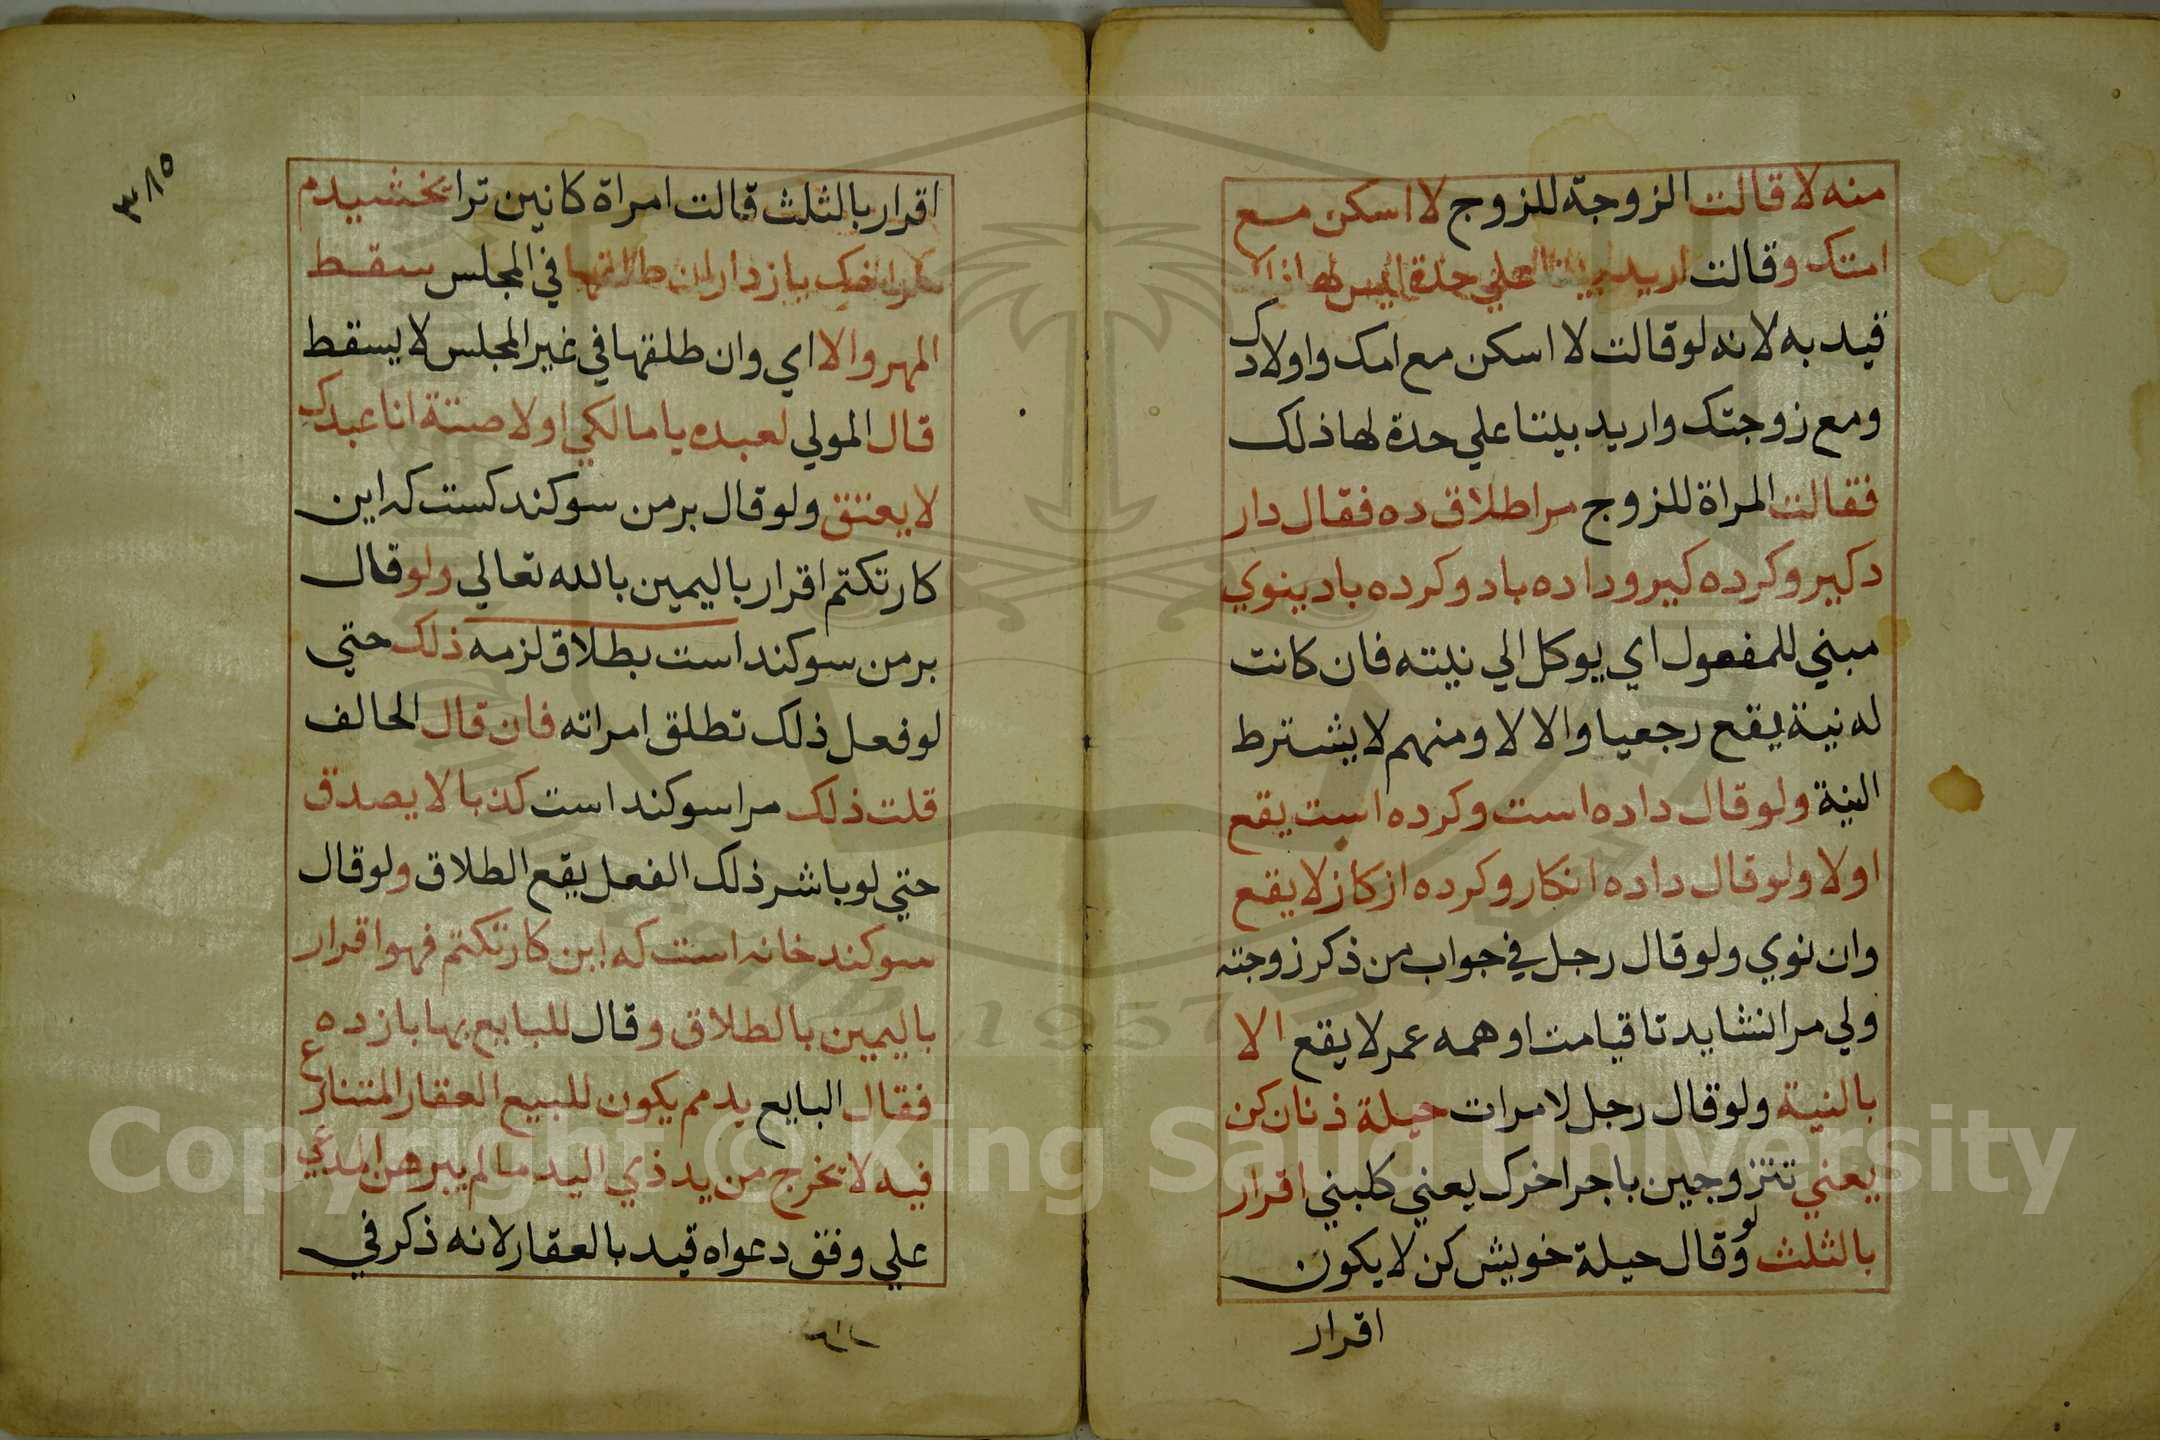 منه لا قالت الزوجة للزوج لا اسكن مع
امتك وقالت اريد بيتا علي حدة ليس لها ذلك
قيد به لانه لو قالت لا اسكن مع امك واولادك
ومع زوجتك واريد بيتا علي حدة لها ذلك
فقالت المراة للزوج مرا طلاق ده فقال دار
دكير وكرده كير وداده باد وكرده باد ينوي
مبني للمفعول اي يوكل الي نيته فان كانت
له نية يقع رجعيا والا لا ومنهم لا يشترط
النية ولو قال داده است وكرده است يقع
اولا ولو قال داده انكار وكرده ازكاز لا يقع
وان نوي ولو قال رجل في جواب من ذكر زوجته
ولي مرا نشايد تا قيامت او همه عمر لا يقع الا
بالنية ولو قال رجل لامرات حيلة ذنان كن
يعني تتزوجين باجرا خرك يعني كلبني اقرار
بالثلث ولو قال حيلة خويش كن لا يكون
اقرار
٣٨٥
اقرار بالثلث قالت امراة كانين ترا بخشيدم
مرا خيك باز دار ان طلقها في المجلس سقط
المهر والا اي وان طلقها في غير المجلس لا يسقط
قال المولي لعبده يا مالكي او لامته انا عبدك
لا يعتق ولو قال بر من سوكند كست كه اين
كار تكتم اقرار باليمين بالله تعالي ولو قال
بر من سوكند است بطلاق لزمه ذلك حتي
لو فعل ذلك تطلق امراته فان قال الحالف
قلت ذلك مرا سوكند است كذبا لا يصدق
حتي لو باشر ذلك الفعل يقع الطلاق ولو قال
سوكند خانه است كه اين كار تكتم فهو اقرار
باليمين بالطلاق وقال للبايع بها باز ده
فقال البايع يدمم يكون للبيع العقار المتنازع
فيه لا تخرج من يد ذي اليد ما لم يبرهن المدعي
علي وفق دعواه قيد بالعقار لانه ذكر في